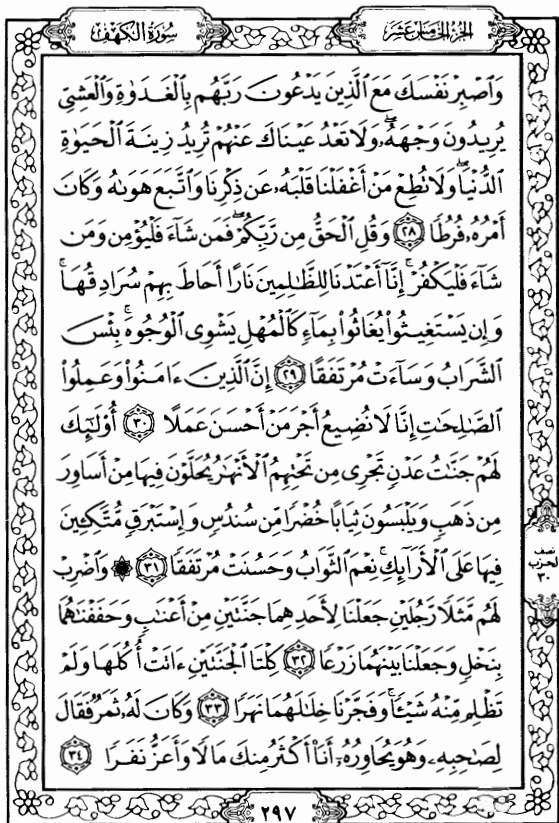 الجزء الخامس عشر
سورة الكهف
وَٱصْبِرْ نَفْسَكَ مَعَ ٱلَّذِينَ يَدْعُونَ رَبَّهُم بِٱلْغَدَوٰةِ وَٱلْعَشِيِّ
يُرِيدُونَ وَجْهَهُۥۖ وَلَا تَعْدُ عَيْنَاكَ عَنْهُمْ تُرِيدُ زِينَةَ ٱلْحَيَوٰةِ
ٱلدُّنْيَاۖ وَلَا تُطِعْ مَنْ أَغْفَلْنَا قَلْبَهُۥ عَن ذِكْرِنَا وَٱتَّبَعَ هَوَىٰهُ وَكَانَ
أَمْرُهُۥ فُرُطًا ٢٨ وَقُلِ ٱلْحَقُّ مِن رَّبِّكُمْۖ فَمَن شَآءَ فَلْيُؤْمِن وَمَن
شَآءَ فَلْيَكْفُرْۚ إِنَّآ أَعْتَدْنَا لِلظَّـٰلِمِينَ نَارًا أَحَاطَ بِهِمْ سُرَادِقُهَاۚ
وَإِن يَسْتَغِيثُوا۟ يُغَاثُوا۟ بِمَآءٍ كَٱلْمُهْلِ يَشْوِى ٱلْوُجُوهَۚ بِئْسَ
ٱلشَّرَابُ وَسَآءَتْ مُرْتَفَقًا ٢٩ إِنَّ ٱلَّذِينَ ءَامَنُوا۟ وَعَمِلُوا۟
ٱلصَّـٰلِحَـٰتِ إِنَّا لَا نُضِيعُ أَجْرَ مَنْ أَحْسَنَ عَمَلًا ٣٠ أُو۟لَـٰٓئِكَ
لَهُمْ جَنَّـٰتُ عَدْنٍ تَجْرِى مِن تَحْتِهِمُ ٱلْأَنْهَـٰرُ يُحَلَّوْنَ فِيهَا مِنْ أَسَاوِرَ
مِن ذَهَبٍ وَيَلْبَسُونَ ثِيَابًا خُضْرًا مِّن سُندُسٍ وَإِسْتَبْرَقٍ مُّتَّكِـِٔينَ
فِيهَا عَلَى ٱلْأَرَآئِكِۚ نِعْمَ ٱلثَّوَابُ وَحَسُنَتْ مُرْتَفَقًا ٣١ ۞ وَٱضْرِبْ
لَهُم مَّثَلًا رَّجُلَيْنِ جَعَلْنَا لِأَحَدِهِمَا جَنَّتَيْنِ مِنْ أَعْنَـٰبٍ وَحَفَفْنَـٰهُمَا
بِنَخْلٍ وَجَعَلْنَا بَيْنَهُمَا زَرْعًا ٣٢ كِلْتَا ٱلْجَنَّتَيْنِ ءَاتَتْ أُكُلَهَا وَلَمْ
تَظْلِم مِّنْهُ شَيْـًٔاۚ وَفَجَّرْنَا خِلَـٰلَهُمَا نَهَرًا ٣٣ وَكَانَ لَهُۥ ثَمَرٌ فَقَالَ
لِصَـٰحِبِهِۦ وَهُوَ يُحَاوِرُهُۥٓ أَنَا۠ أَكْثَرُ مِنكَ مَالًا وَأَعَزُّ نَفَرًا ٣٤
نصف
الحزب
٣٠
٢٩٧